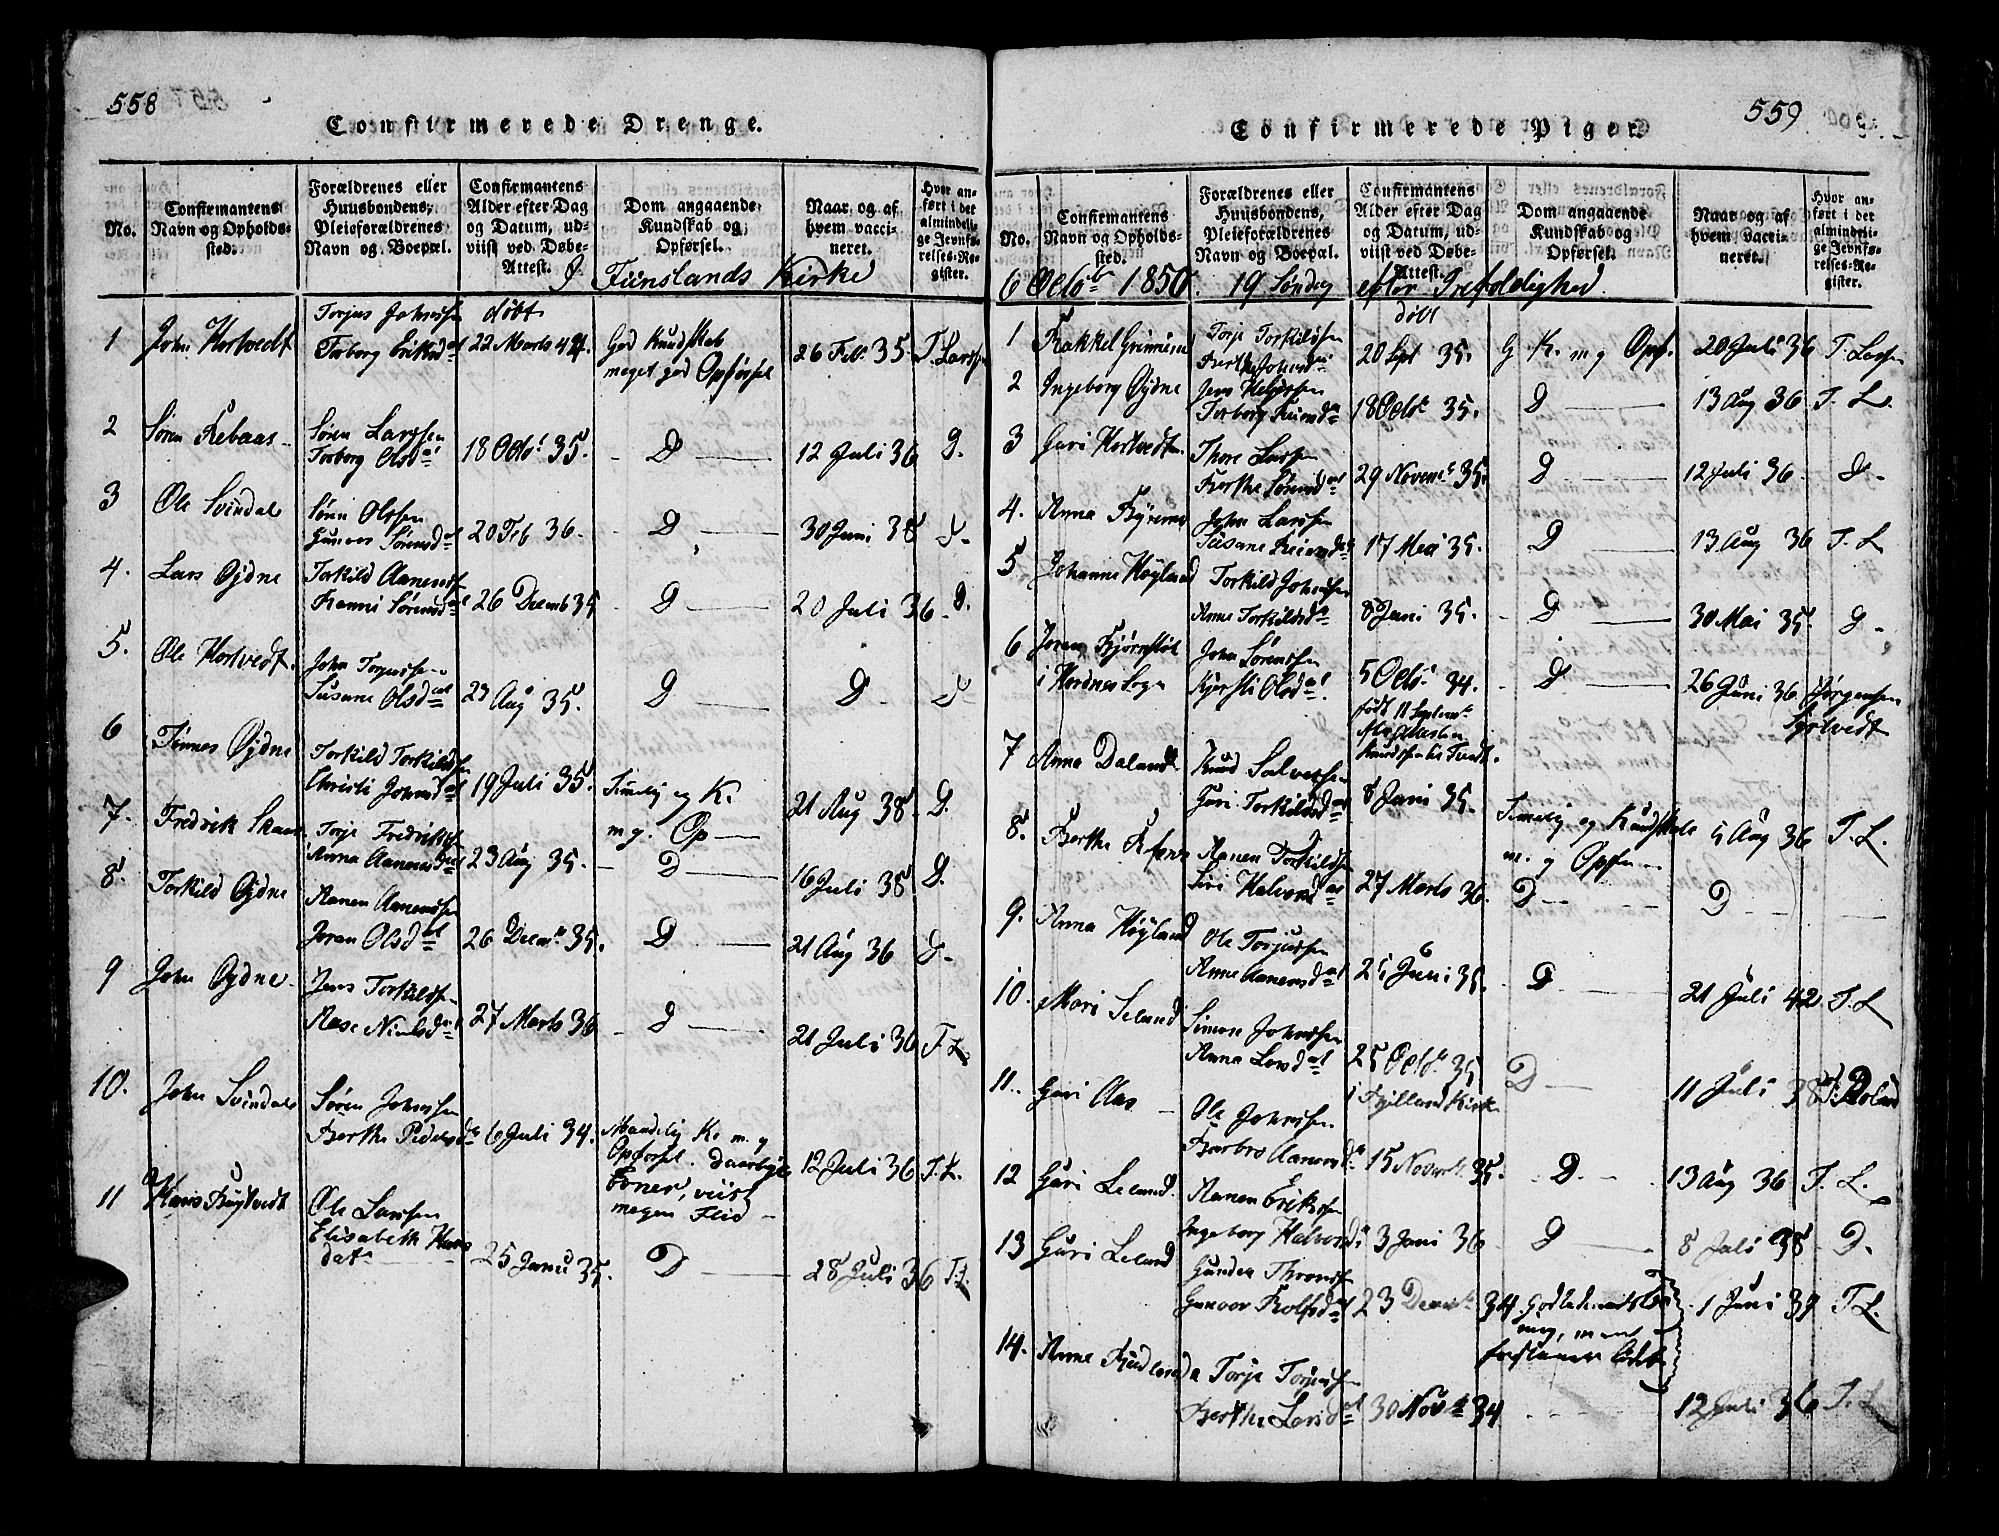 558
Confirmerede Drenge.
No.
Confirmantens Navn og Opholdssted.
Forældrenes eller Huusbondens, Pleieforældrenes Navn og Boepæl.
Confirmantens Alder efter Dag og Datum, udviist ved Døbe-Attest.
Dom angaaende Kundskab og Opførsel.
Naar og af hvem vaccineret.
Hvor anført i det almindelige Jevnførelses-Register.
Finslands Kirke
Torjus Johnssen døbt
1 John Hortvedt Torborg Eriksd 22 Marts God Kundskab 26 Feb. 35. T. Larssen
meget god Opførsel
2 Søren Søren Larssen
Torborg Olsd 18 Octb 35. D 12 Juli 36 D.
3 Ole Svindal Søren Olssen
Gunvor Sørensd 20 Feb 36. D 30 Juni 38 D
4. Lars Øydne Torkild Aanenss
Sørensd 26 Decemb 35 D 20 Juli 36 D.
5. Ole Hortvedt. John Torjussen
Susane Olsdat 23 Aug 35. D D D
6 Tønnes Øydne Torkild Torkilds
Christi Johnsd 19 Juli 35. Temelig og K. 21 Aug 38. D.
m g. Op
7. Fredrik Torje Fredriks
Anna Aanensd 23 Aug 35. D 16 Juli 38 D.
8. Torkild Øydne Aanen Aanenssen
Joran Olsd 26 Decem 35. D 21 Aug 36 D
9 John Øydne Jens Torkildss
Aase Nielsd 27 Marts 36 D 21 Juli 36 T. L
10. John Svindal Søren Johnssen
Berthe Pedersd 6 Juli 34. Maadelig K. m. g
Opførsel. 12 Juli 36 T. L.
Evner, viist
megen Flid
11 Hans Ole Larssen
Elisabeth Hans
dat 25 Janu 35. D 28 Juli 36 T. L.
559
Confirmerede Piger.
No.
Confirmantens Navn og Opholdssted.
Forældrenes eller Huusbondens, Pleieforældrenes Navn og Boepæl.
Confirmantens Alder efter Dag og Datum, udviist ved Døbe-Attest.
Dom angaaende Kundskab og Opførsel.
Naar og af hvem vaccineret.
Hvor anført i det almindelige Jevnførelses-Register.
6 Octbr 1850. 19 Søndag efter Trefoldighed.
døbt
1 Rakkel Torje Torkilssen
Berthe Johnsd 20 Spt 35. G K. m g Opf. 20 Juli 36 T. Larssen
2 Ingeborg Øydne Jens
Torborg 18 Octb 35. D 13 Aug 36 T. L.
3 Guri Hortvedt Thore Larssen
Berthe Sørensd 29 Novem 35. D 12 Juli 36 D
4. Anna John Larssen
Susane 17 Mai 35. D 13 Aug 36 T. L
5 Johanne Høyland Torkild Johnssen
Anne Torkildsd 8 Juni 35. D 30 Mai 35. D
6 Joran John Sørenssen
Kjersti Olsdat. 5 Octb 34. D 26 Juni 36 Jørgensen
født 11 Septem
7 Anna Daland Knud Salvesen
Guri Torkildsd 8 Juni 35. Temelig og Kundskab 5 Aug 36 T. L.
m. g Opf
8. Berthe Aanen Torkilds
Siri Halvorsd 27 Marts 36. D D
9. Anna Høyland Ole Torjussen
Anne Aanensd 21 Juni 35. D 21 Juli 42 T. L
10. Mari Leland Simon Johnssen
Anna Larsd 25 Octb 35 D 11 Juli 38
i Kirke
11. Guri Aas Ole Johnssen
Barbro Aanensd 15 Novem 35. D. 13 Aug 36 T. L.
12 Guri Leland. Aanen Erikssen
Ingeborg Halvorsd 3 Juni 36 D 8 Juli 38 D.
13 Guri Leland
Gunvor Rolfsd 23 Decem 34 1 Juni 37 T. L.
14. Anne Torje
Berthe Larsd 30 Nov 34 12 Juli 36 T. L